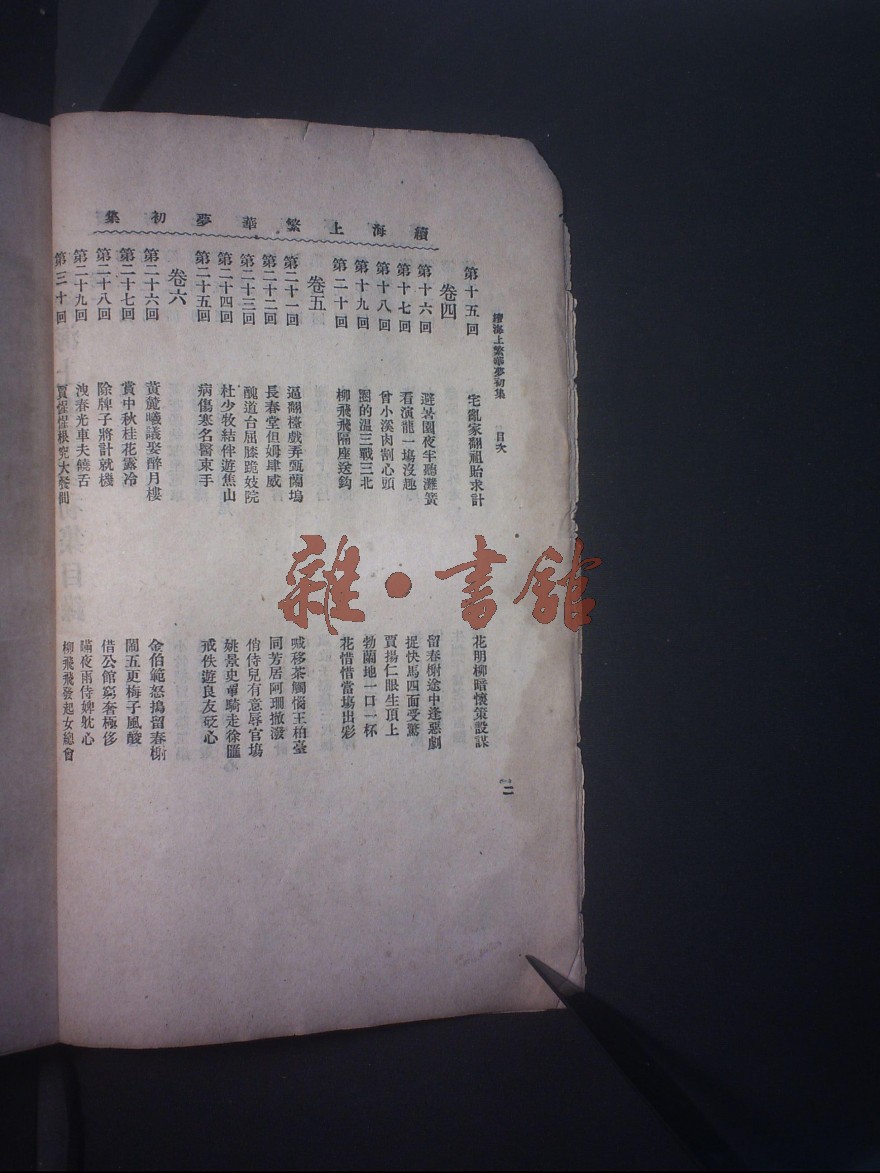 續海上繁華夢初集
續海上繁華夢初集 目次 二
第十五回 宅亂家翻祖貽求計 花明柳暗懷策設謀
卷四
第十六回 避暑園夜半聽灘簧 留春榭途中逢惡劇
第十七回 看演龍一塲沒趣 捉快馬四面受驚
第十八回 曾小溪肉割心頭 賈揚仁眼生頂上
第十九回 圈的溫三戰三北 勃蘭地一口一杯
第二十回 柳飛飛隔座送鈎 花惜惜當塲出彩
卷五
第二十一回 逼翻檯戲弄甄蘭塢 喊移茶觸惱王柏臺
第二十二回 長春堂但姆肆威 同芳居阿珊撤潑
第二十三回 醜道台屈膝跪妓院 俏侍兒有意辱官塲
第二十四回 杜少牧結伴遊焦山 姚景史單騎走徐匯
第二十五回 病傷寒名醫束手 戒佚遊良友砭心
卷六
第二十六回 黃麓曦議娶醉月樓 金伯範怒搗留春榭
第二十七回 賞中秋桂花露冷 鬧五更梅子風酸
第二十八回 除牌子將計就機 借公館窮奢極侈
第二十九回 洩春光車夫饒舌 瞞夜雨侍婢躭心
第三十回 賈惺惺根究大餐間 柳飛飛發起女總會
雜·書館